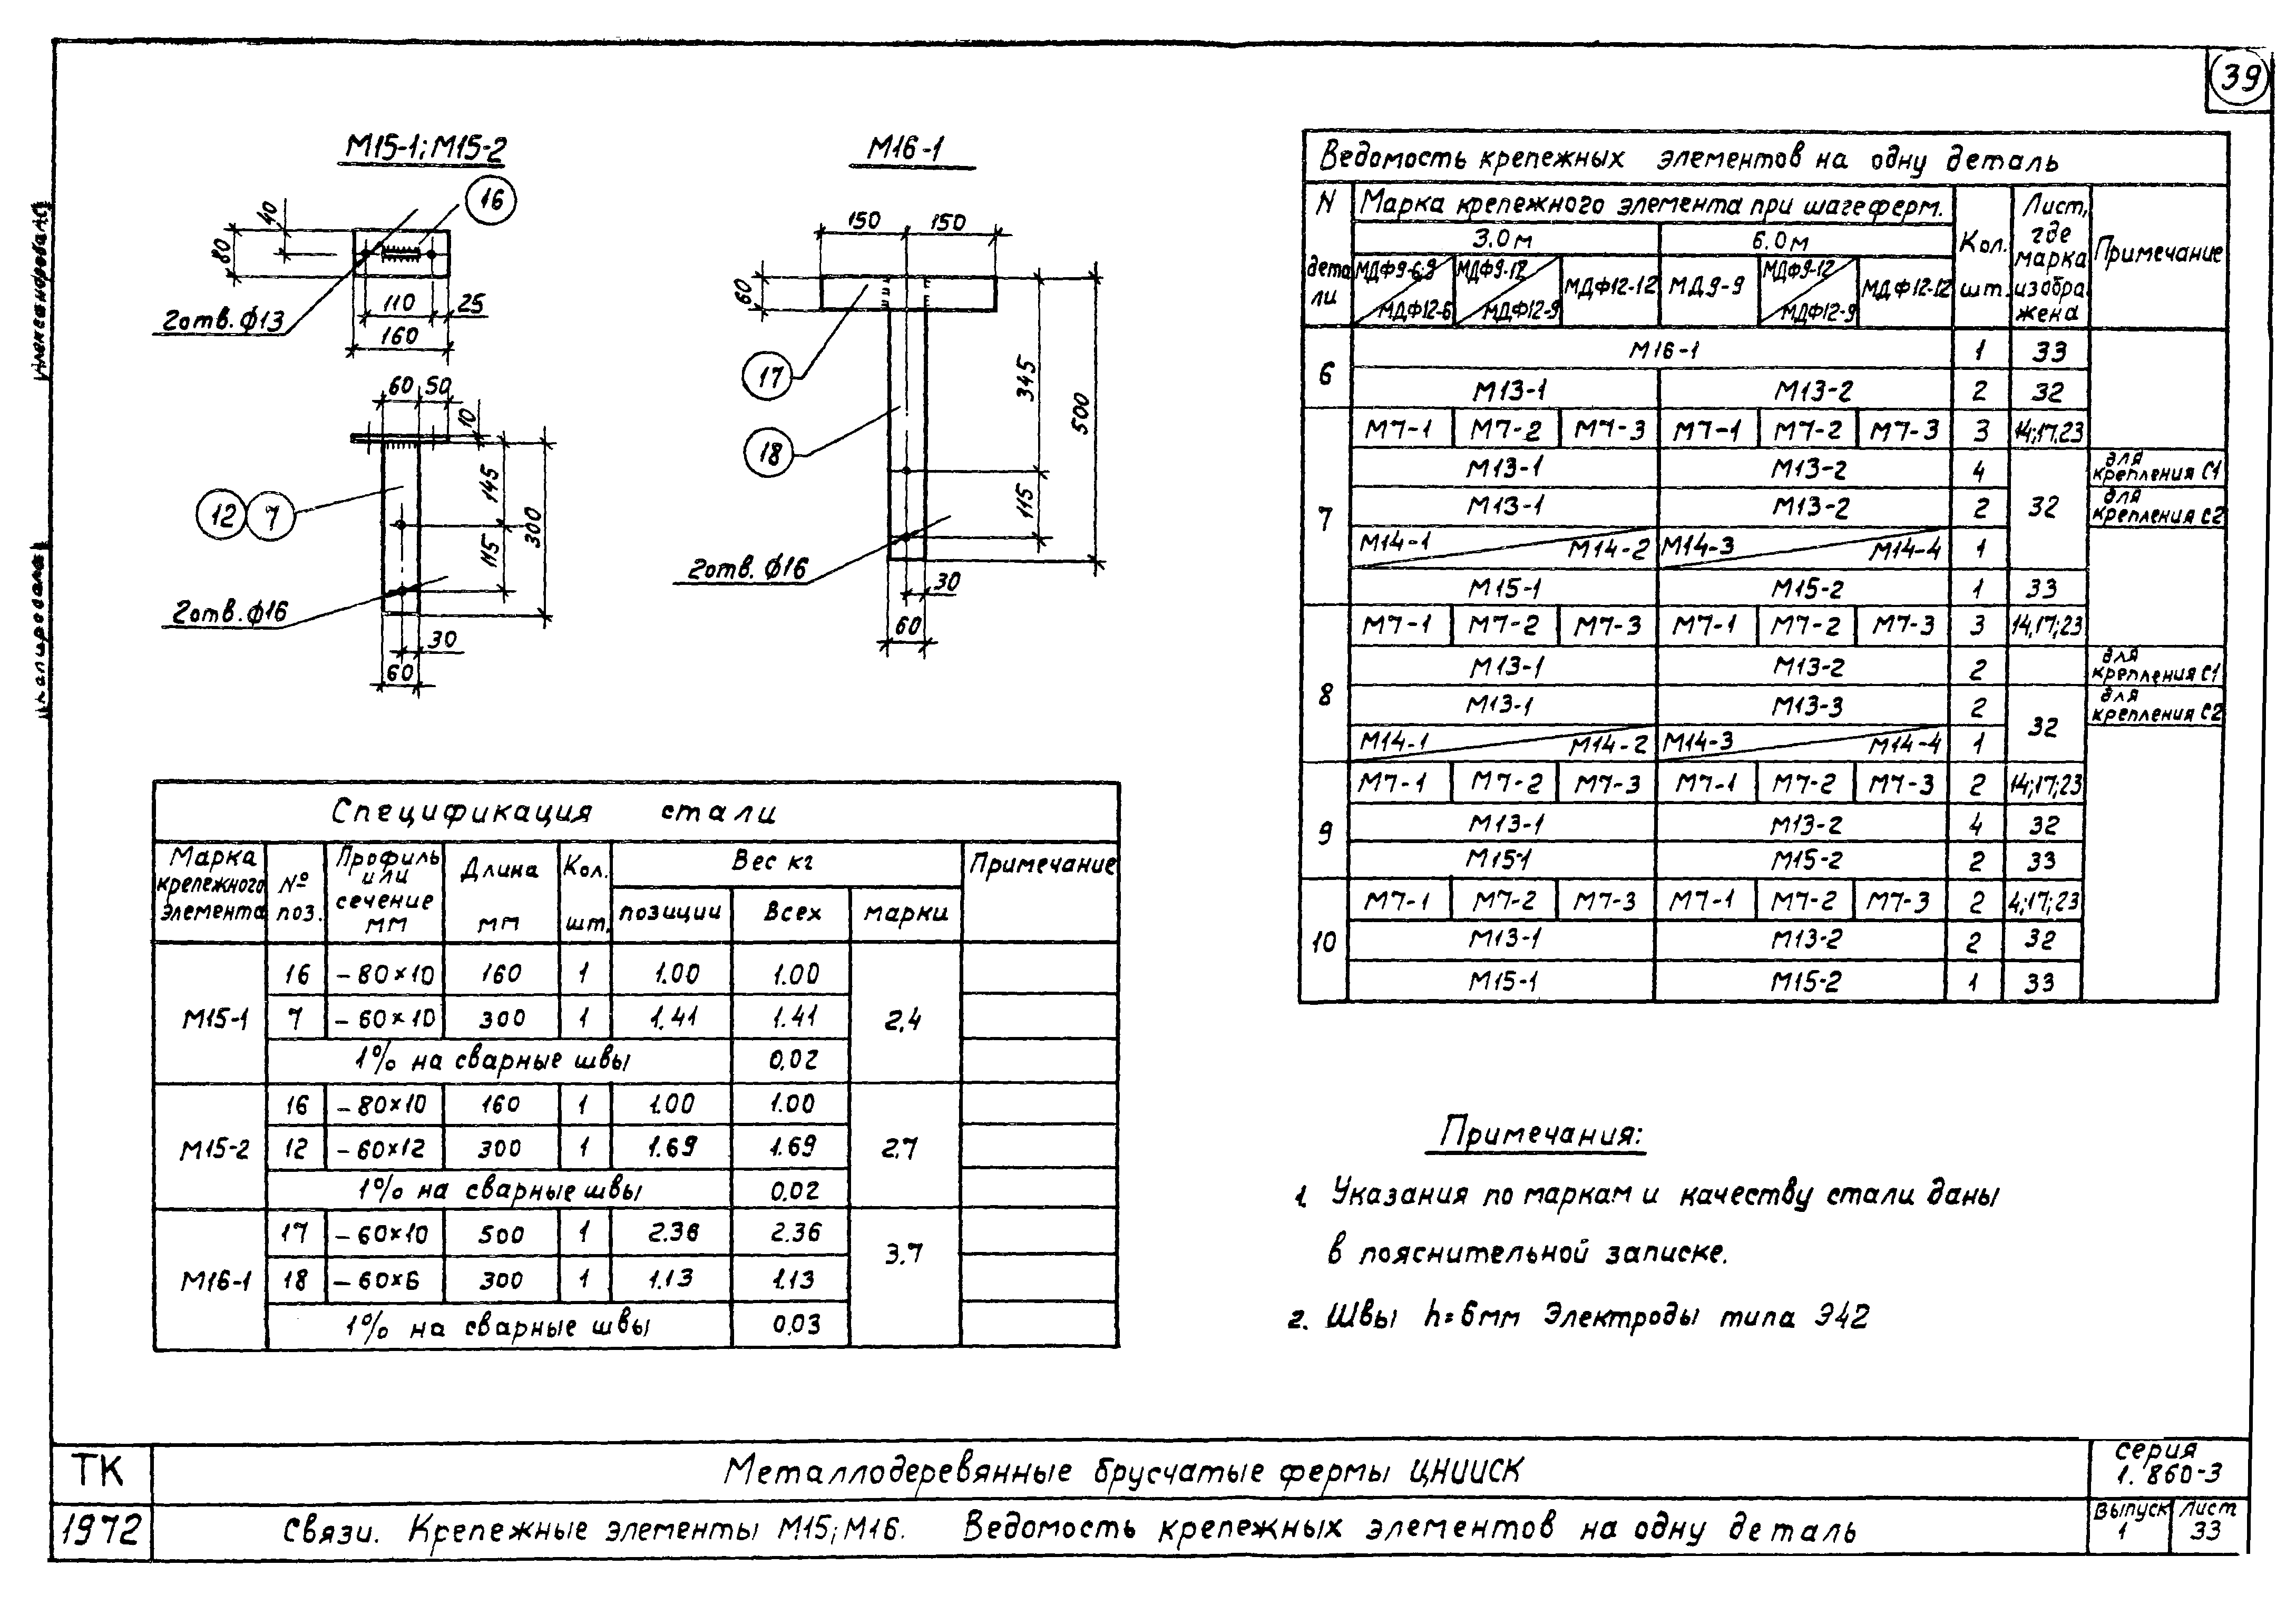 39
М15-1; М15-2
16
40
80
110
25
160
2отв. ф13
60
50
10
145
300
115
12
7
2отв. ф16
30
60
М16-1
150
150
60
17
345
500
18
115
2отв. ф16
30
60
Ведомость крепежных элементов на одну деталь
N детали
Марка крепежного элемента при шаге ферм.
Кол. шт.
Лист, где марка изображена
Примечание
3.0м
6.0м
МДФ9-6;9 / МДФ12-6
МДФ9-12 / МДФ12-9
МДФ12-12
МД9-9
МДФ9-12 / МДФ12-9
МДФ12-12
6
М16-1 1 33
М13-1 М13-2 2 32
7
М7-1 М7-2 М7-3 М7-1 М7-2 М7-3 3 14;17,23
М13-1 М13-2 4 для крепления С1
М13-1 М13-2 2 32 для крепления С2
М14-1 М14-2 М14-3 М14-4 1
М15-1 М15-2 1 33
8
М7-1 М7-2 М7-3 М7-1 М7-2 М7-3 3 14,17;23
М13-1 М13-2 2 для крепления С1
М13-1 М13-3 2 32 для крепления С2
М14-1 М14-2 М14-3 М14-4 1
9
М7-1 М7-2 М7-3 М7-1 М7-2 М7-3 2 14;17;23
М13-1 М13-2 4 32
М15-1 М15-2 2 33
10
М7-1 М7-2 М7-3 М7-1 М7-2 М7-3 2 4;17;23
М13-1 М13-2 2 32
М15-1 М15-2 1 33
Спецификация стали
Марка крепежного элемента
№ поз.
Профиль или сечение мм
Длина мм
Кол. шт.
Вес кг
Примечание
позиции
всех
марки
М15-1
16 -80×10 160 1 1.00 1.00
7 -60×10 300 1 1.41 1.41 2.4
1% на сварные швы 0.02
М15-2
16 -80×10 160 1 1.00 1.00
12 -60×12 300 1 1.69 1.69 2.7
1% на сварные швы 0.02
М16-1
17 -60×10 500 1 2.36 2.36 3.7
18 -60×6 300 1 1.13 1.13
1% на сварные швы 0.03
Примечания:
1. Указания по маркам и качеству стали даны
в пояснительной записке.
2. Швы h=6мм Электроды типа Э42
ТК
1972
Металлодеревянные брусчатые фермы ЦНИИСК
Связи. Крепежные элементы М15; М16. Ведомость крепежных элементов на одну деталь
серия
1.860-3
Выпуск
1
Лист
33